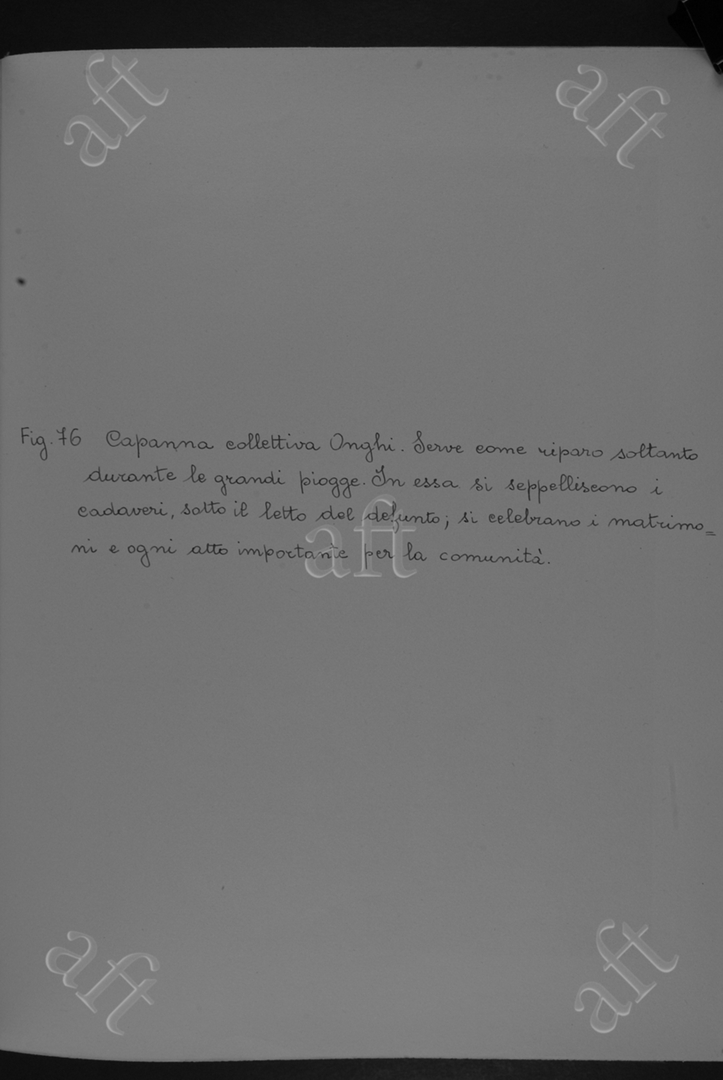 aft
aft
Fig. 76 Capanna collettiva Onghi. Serve come riparo soltanto
durante le grandi piogge. In essa si seppelliscono i
cadaveri, sotto il letto del defunto; si celebrano i matrimo=
ni e ogni atto importante per la comunità.
aft
aft
aft